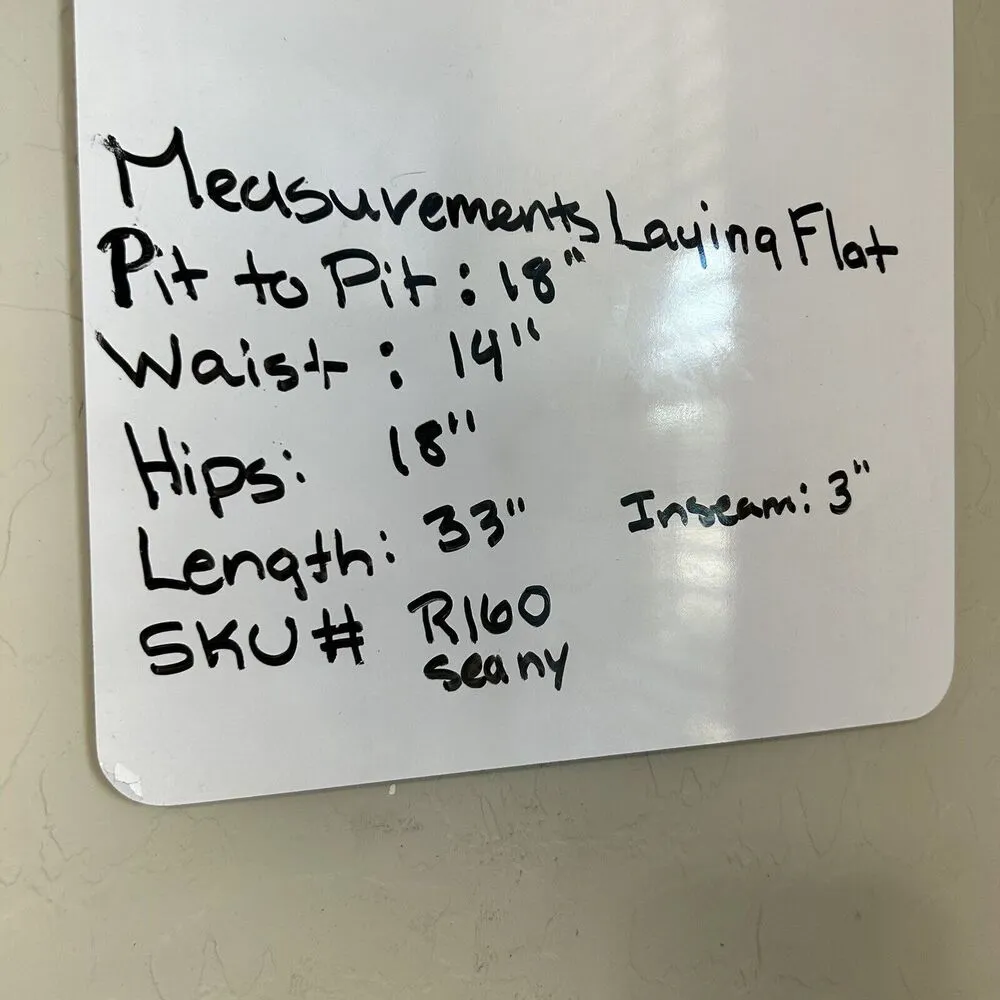 Measurements Laying Flat
Pit to Pit : 18"
Waist : 14"
Hips: 18"
Length: 33" Inseam: 3"
SKU # R160
seany